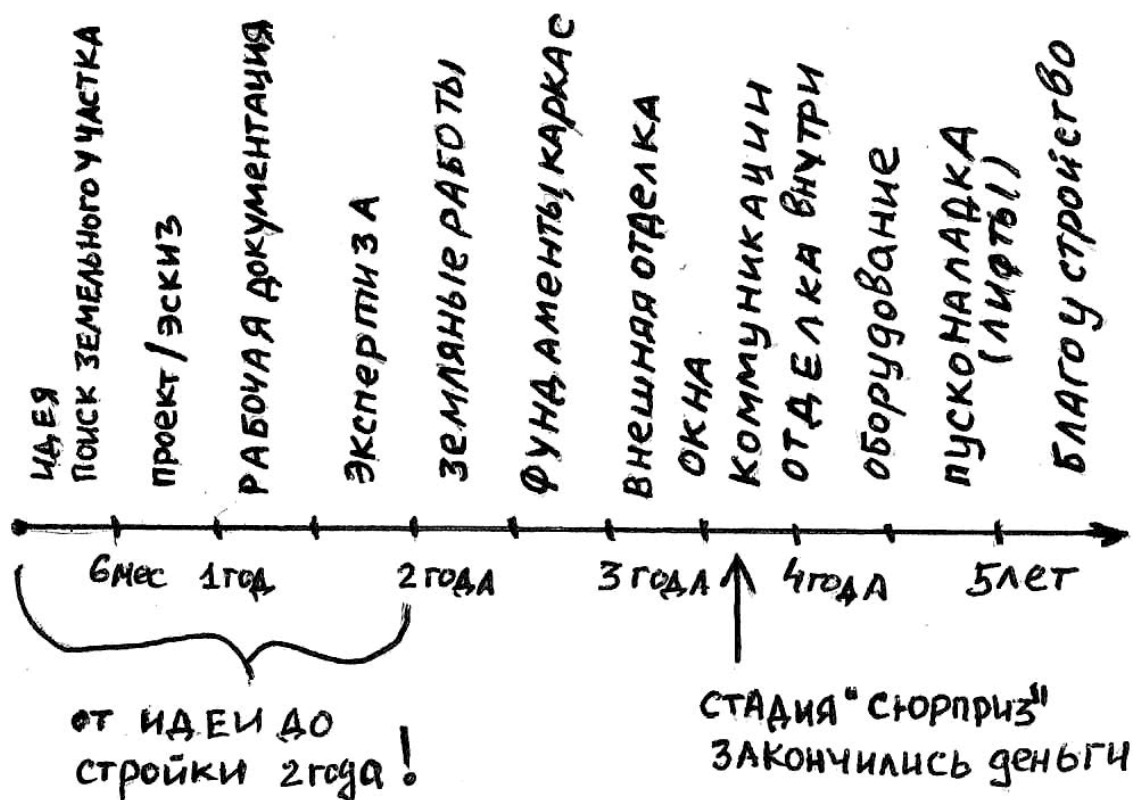 ИДЕЯ
ПОИСК ЗЕМЕЛЬНОГО УЧАСТКА
ПРОЕКТ/ЭСКИЗ
РАБОЧАЯ ДОКУМЕНТАЦИЯ
ЭКСПЕРТИЗА
ЗЕМЛЯНЫЕ РАБОТЫ
ФУНДАМЕНТЫ, КАРКАС
ВНЕШНАЯ ОТДЕЛКА
ОКНА
КОММУНИКАЦИИ
ОТДЕЛКА ВНУТРИ
ОБОРУДОВАНИЕ
ПУСКОНАЛАДКА
(ЛИФТЫ)
БЛАГОУСТРОЙСТВО
6 мес
1 год
2 года
3 года
4 года
5 лет
ОТ ИДЕИ ДО
СТРОЙКИ 2 года!
СТАДИЯ "СЮРПРИЗ"
ЗАКОНЧИЛИСЬ деньги